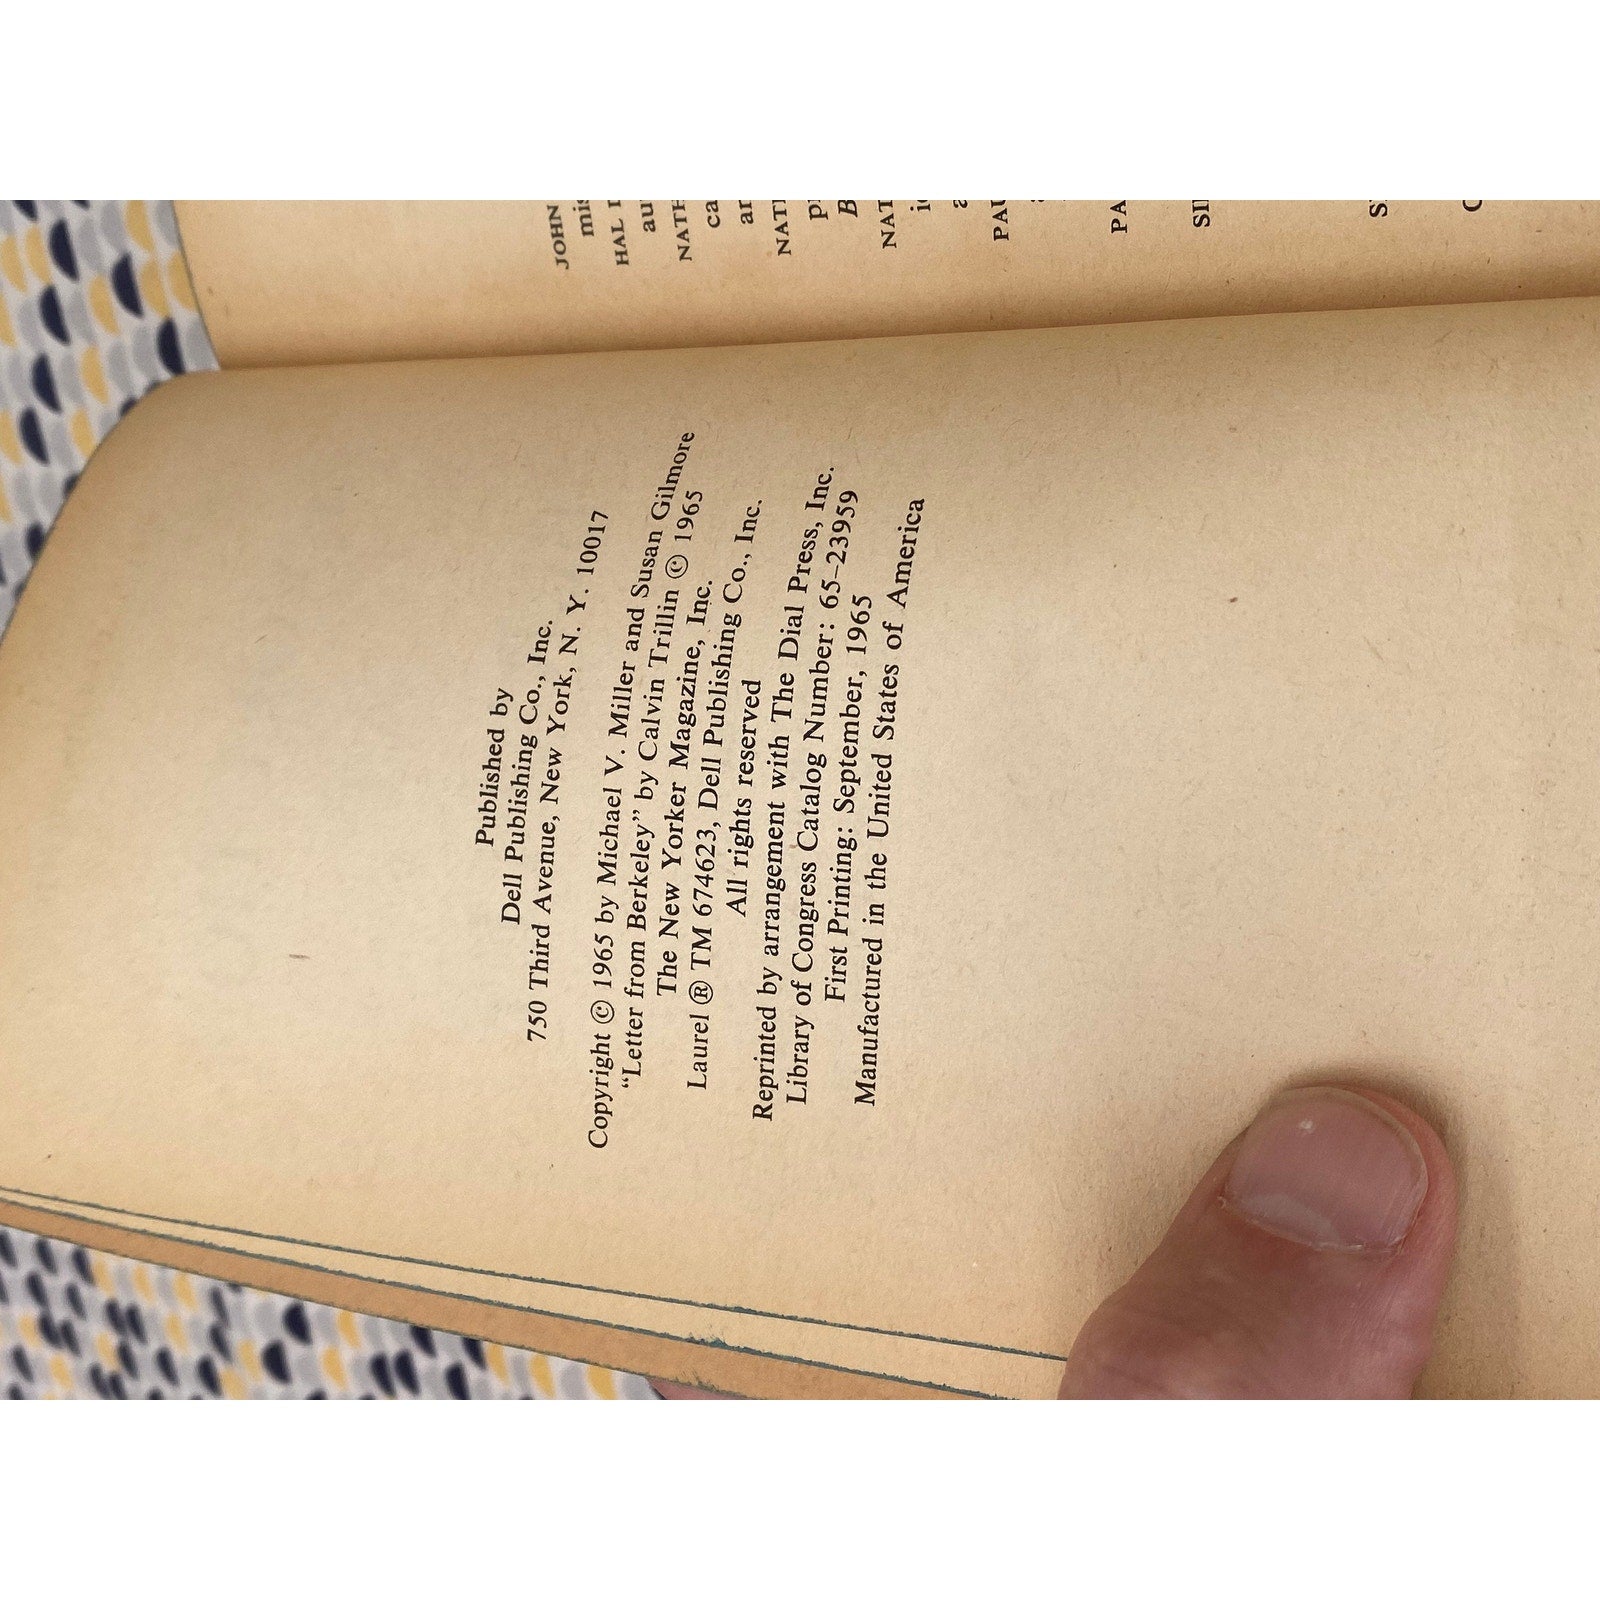 Published by
Dell Publishing Co., Inc.
750 Third Avenue, New York, N. Y. 10017
Copyright © 1965 by Michael V. Miller and Susan Gilmore
“Letter from Berkeley” by Calvin Trillin © 1965
The New Yorker Magazine, Inc.
Laurel ® TM 674623, Dell Publishing Co., Inc.
All rights reserved
Reprinted by arrangement with The Dial Press, Inc.
Library of Congress Catalog Number: 65–23959
First Printing: September, 1965
Manufactured in the United States of America
JOHN
HAL